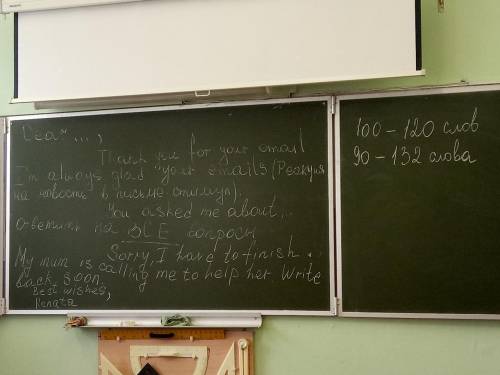 Dear ...,
Thank you for your email
I'm always glad your emails (Реакция
на новость в письме-стимуле).
You asked me about...
Ответить на ВСЕ вопросы
Sorry, I have to finish...
My mum is calling me to help her Write
back soon.
Best wishes,
Renata
100 - 120 слов
90 - 132 слова